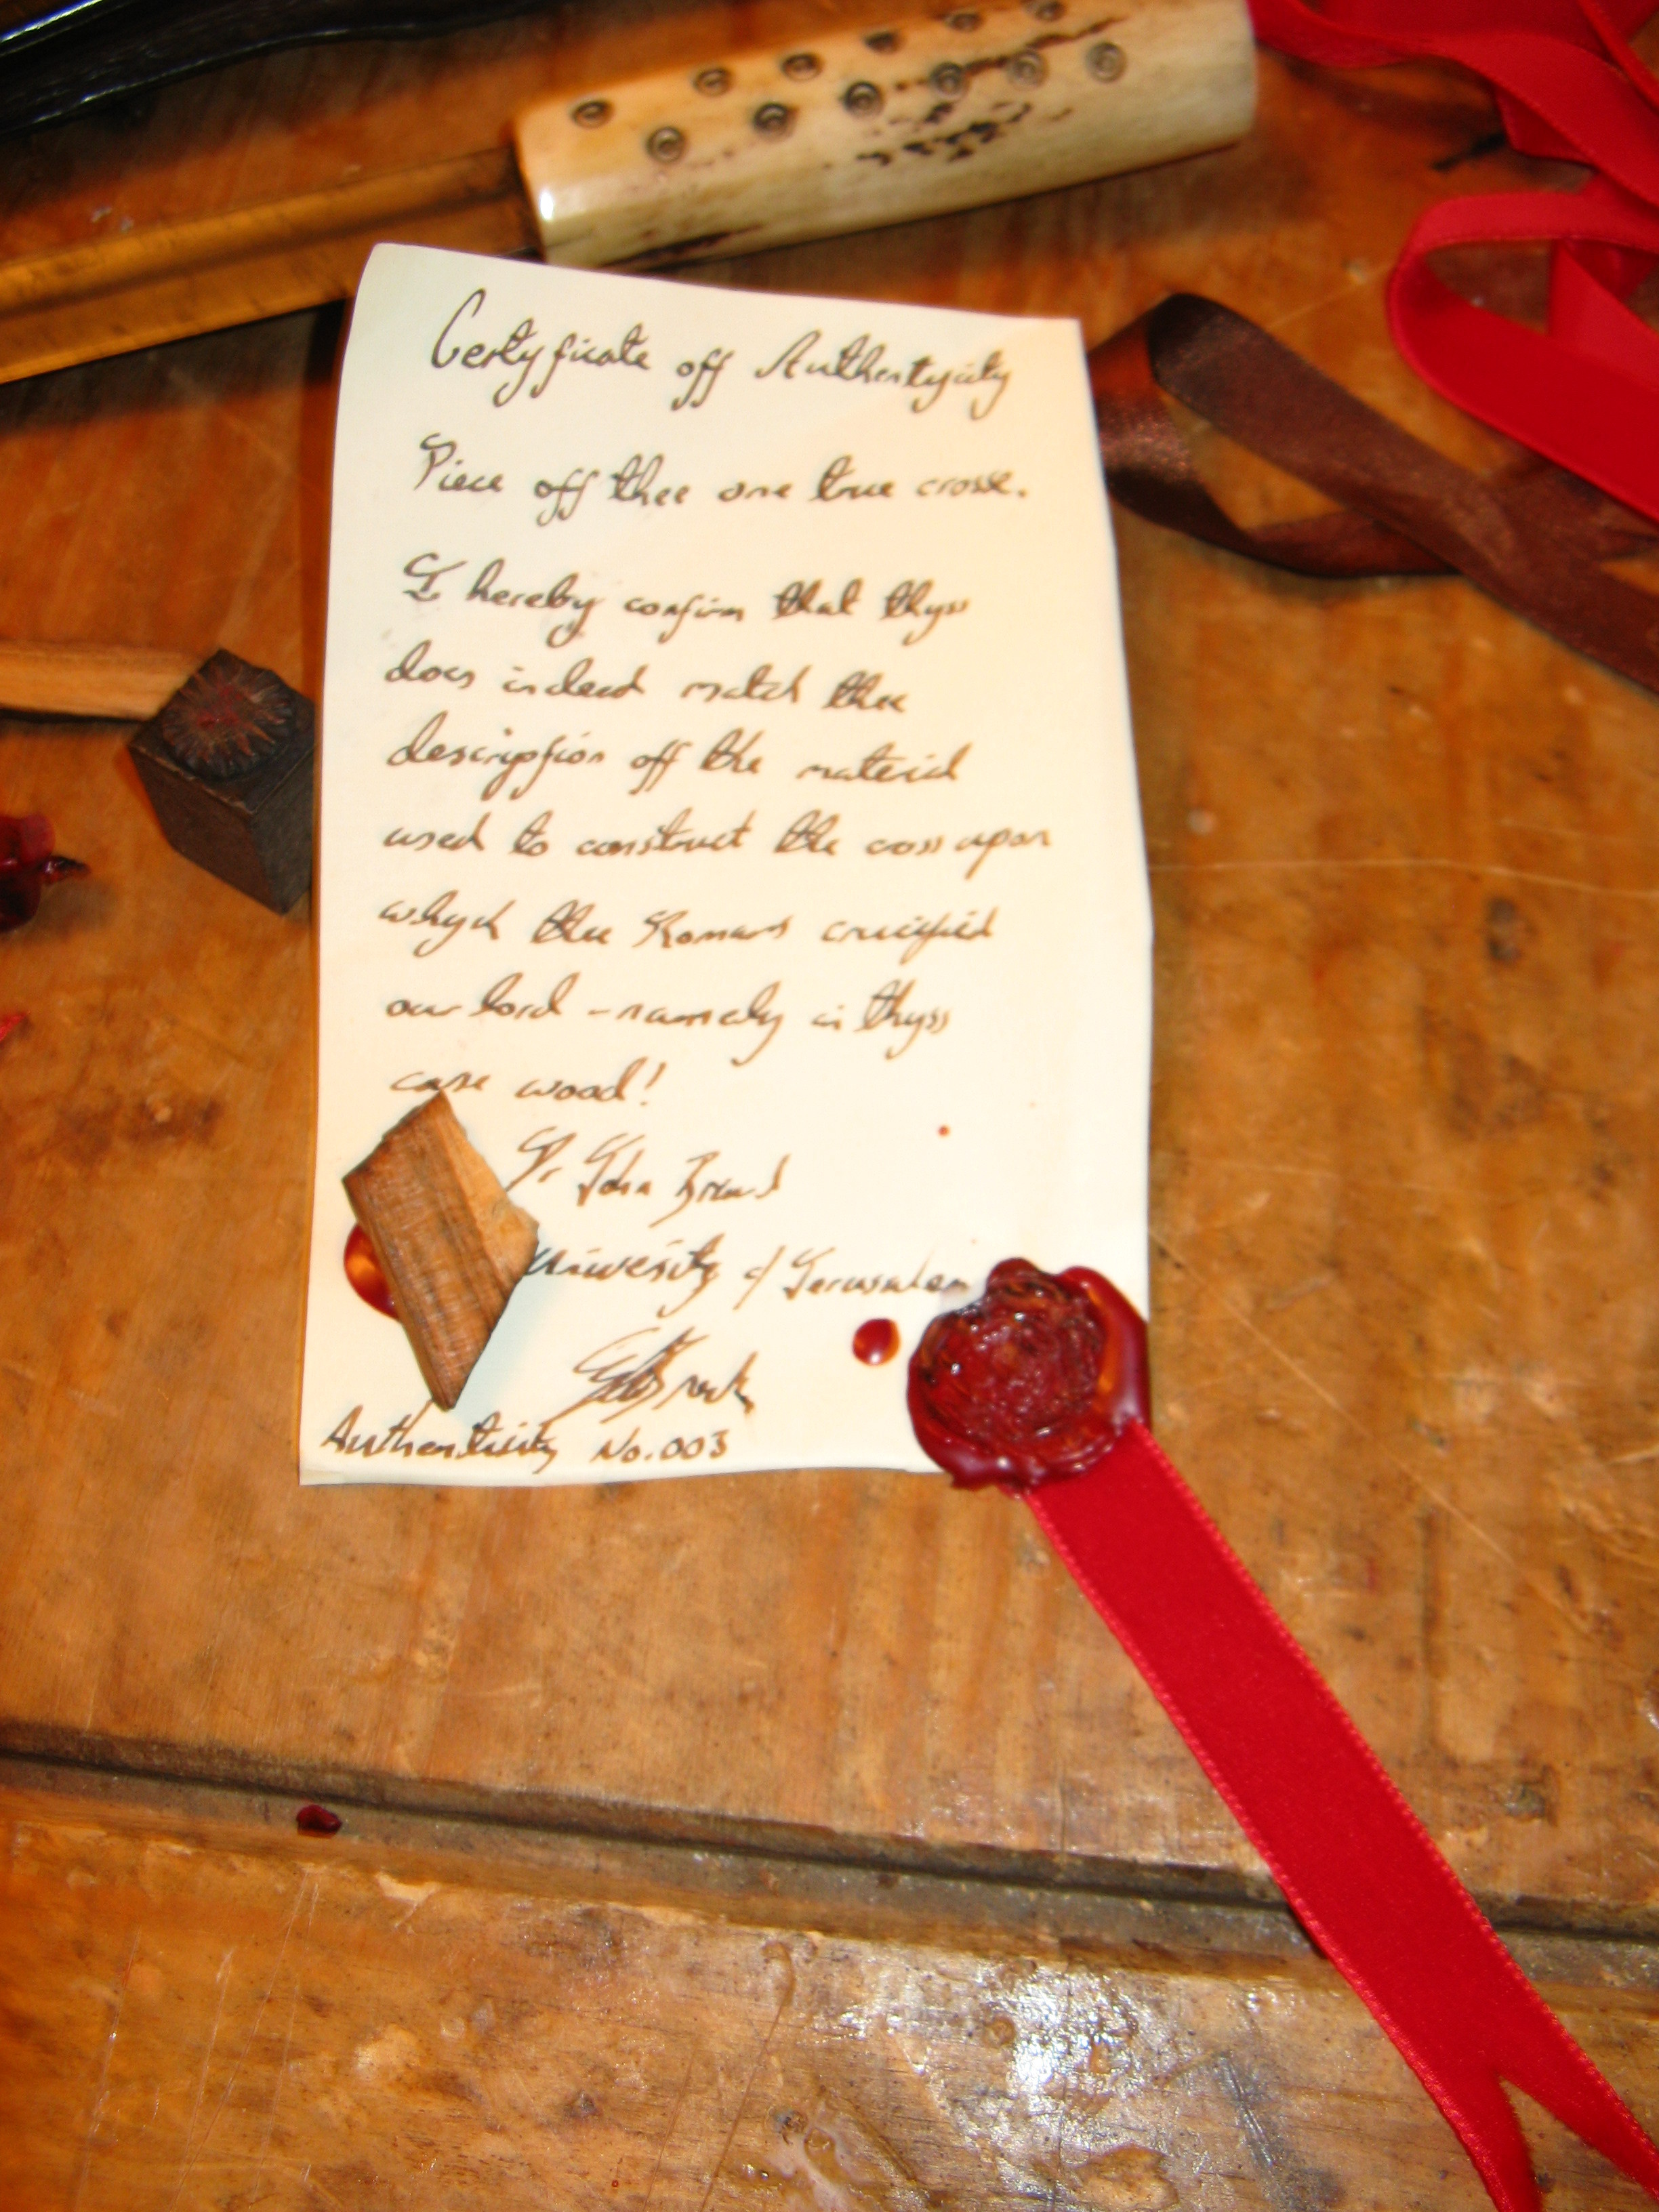 Certyficate off Authentycity
Piece off thee one true crosse.
I hereby confirm that thyss
does indeed match thee
description off the material
used to construct the cross upon
whych thee Romans crucified
our lord - namely in thyss
case wood!
Dr John
University of Jerusalem
Authenticity No. 003